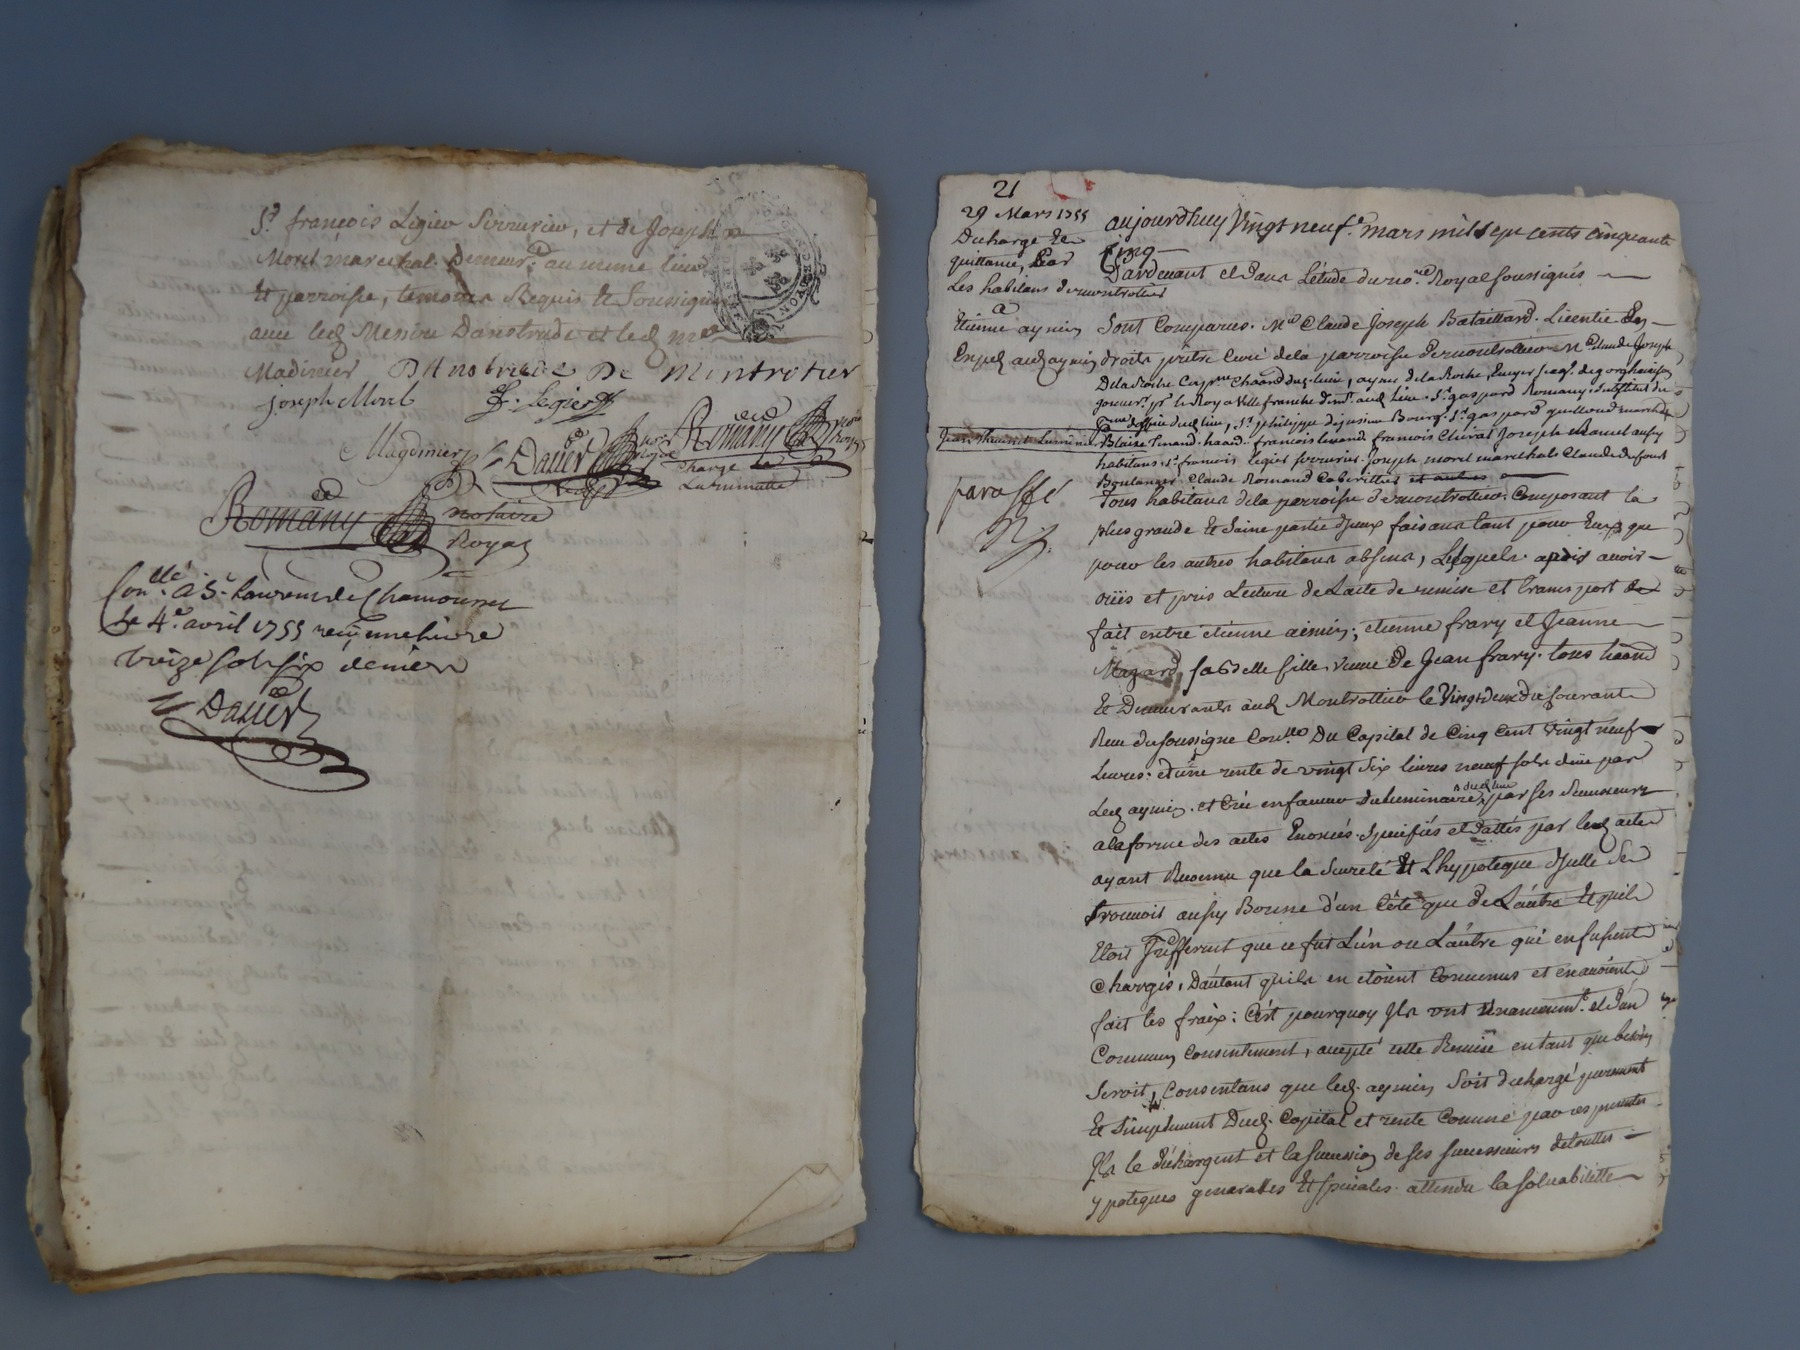 Sr. françois Légier Serrurier, et de Joseph
Morel maréchal Demeurt. au même lieu
Et parroisse, témoins Requis Et Soussignés
avec led. Messire Danstrude et led. me
Madinier Danstrude De Montrotier
Joseph Morel f. Legier
Magdinier Daver Romany
Charge de
La minutte
Romany notaire
Royal
Conllé. à St. Laurent de Chamousset
Le 4e. avril 1755 reçu une livre
treize sols six deniers
Daver
21
29 Mars 1755
Décharge Et
quittance, Par
Les habitans de montrotier
a
Etienne aymin
Jean
paraffé
aujourdhuy Vingt neufe. mars mil sept cents cinquante
cinq
Pardevant et Dans L'étude du nore. Royal soussignés
Sont Comparus. Mre Claude Joseph Bataillard. Licentié En
droits prêtre curé de la parroisse De montrottier Me Claude Joseph
De la Roche
gouverr. pr. le Roy a Villefranche demt. aud. Lieu. Sr. gaspard Romany. Substitut du
dud. lieu, Sr. philippe dejussieu Bourg. Sr. gaspard guilloud marchd.
Blaise françois francois Chirat Joseph aussy
habitans. Sr. francois legier serrurier. Joseph morel marechal Claude dufour
Boulanger. Claude Romand Cabarettier et autres
Tous habitans de la parroisse de montrottier. Composant la
plus grande Et Saine partie d'jceux faisans tant pour Eux que
pour les autres habitans absens, Lesquels après avoir
oüis et pris Lecture de L'acte de remise et transport de
fait entre etienne aimin; etienne frary et Jeanne
Mazard, sa belle fille. veuve De Jean frary. tous
Et Demeurants aud. Montrottier le Vingt deux du Courant
Reçu du soussigné Conllé. Du Capital de Cinq Cent Vingt neuf
Livres: et d'une rente de vingt six livres neuf sols düe par
Led. aymin. et créé en faveur du luminaire dud. lieu, par ses
a la forme des actes Enoncés. Spécifiés et Dattés par led. acte
ayant Reconnu que la Sureté Et L'hypoteque d'jcelle Se
trouvoit aussy Bonne d'un Côté que de L'autre Et quil
Etoit Jndifferent que ce fut L'un ou L'autre qui en fussent
Chargés, D'autant quils en etoient Convenus et en avoient
fait les fraix: C'est pourquoy Jls ont Unanimemt. et D'un
Commun Consentement, accepté cette Remise en tant que besoin
Seroit, Consentans que led. aymin Soit déchargé purement
Et Simplement Dud. Capital et rente Comme par ces presentes
Jls le déchargent et la succession de ses successeurs de touttes
ypoteques generalles Et spéciales. attendu la solvabilitté